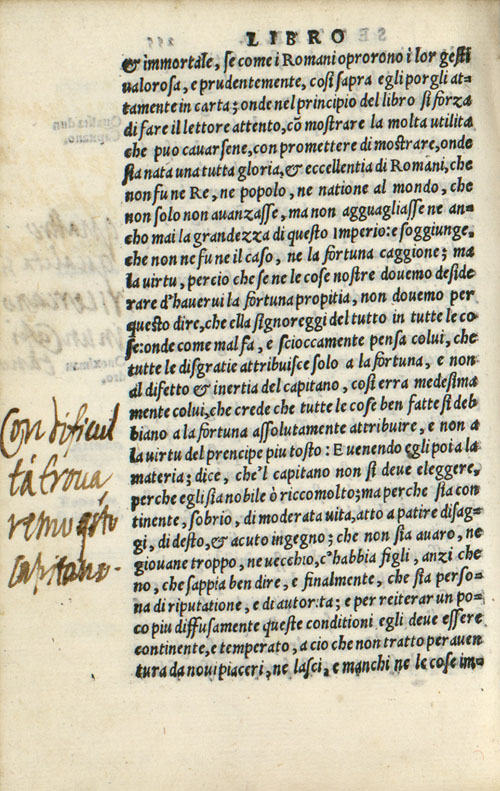 LIBRO
& immortale, se come i Romani oprorono i lor gesti
ualorosa, e prudentemente, cosi sapra egli porgli at-
tamente in carta; onde nel principio del libro si sforza
di fare il lettore attento, cō mostrare la molta utilita
che puo cauarsene, con promettere di mostrare, onde
sia nata una tutta gloria, & eccellentia di Romani, che
non fu ne Re, ne popolo, ne natione al mondo, che
non solo non auanzasse, ma non agguagliasse ne an-
cho mai la grandezza di questo Imperio: e soggiunge,
che non ne fu ne il caso, ne la fortuna caggione; ma
la uirtu, percio che se ne le cose nostre douemo deside
rare d'hauerui la fortuna propitia, non douemo per
questo dire, che ella signoreggi del tutto in tutte le co
se: onde come mal fa, e scioccamente pensa colui, che
tutte le disgratie attribuisce solo a la fortuna, e non
al difetto & inertia del capitano, cosi erra medesima
mente colui, che crede che tutte le cose ben fatte si deb
biano a la fortuna assolutamente attribuire, e non a
la uirtu del prencipe piu tosto: E uenendo egli poi a la
materia; dice, che'l capitano non si deue eleggere,
perche egli sia nobile ò ricco molto; ma perche sia con
tinente, sobrio, di moderata uita, atto a patire disag-
gi, di desto, & acuto ingegno; che non sia auaro, ne
giouane troppo, ne uecchio, c'habbia figli, anzi che
no, che sappia ben dire, e finalmente, che sia perso-
na di riputatione, e di autorita; e per reiterar un po-
co piu diffusamente queste conditioni egli deue essere
continente, e temperato, a cio che non tratto per auen
tura da noui piaceri, ne lasci, e manchi ne le cose im-
Con dificul
tà troua
remo qsto
capitano.